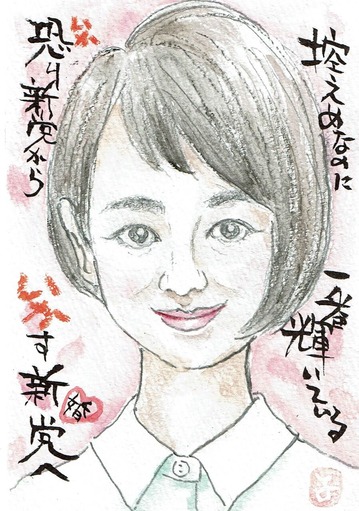 控えめなのに
一番輝いている
いか
怒り新党から
いかす新党へ
婚